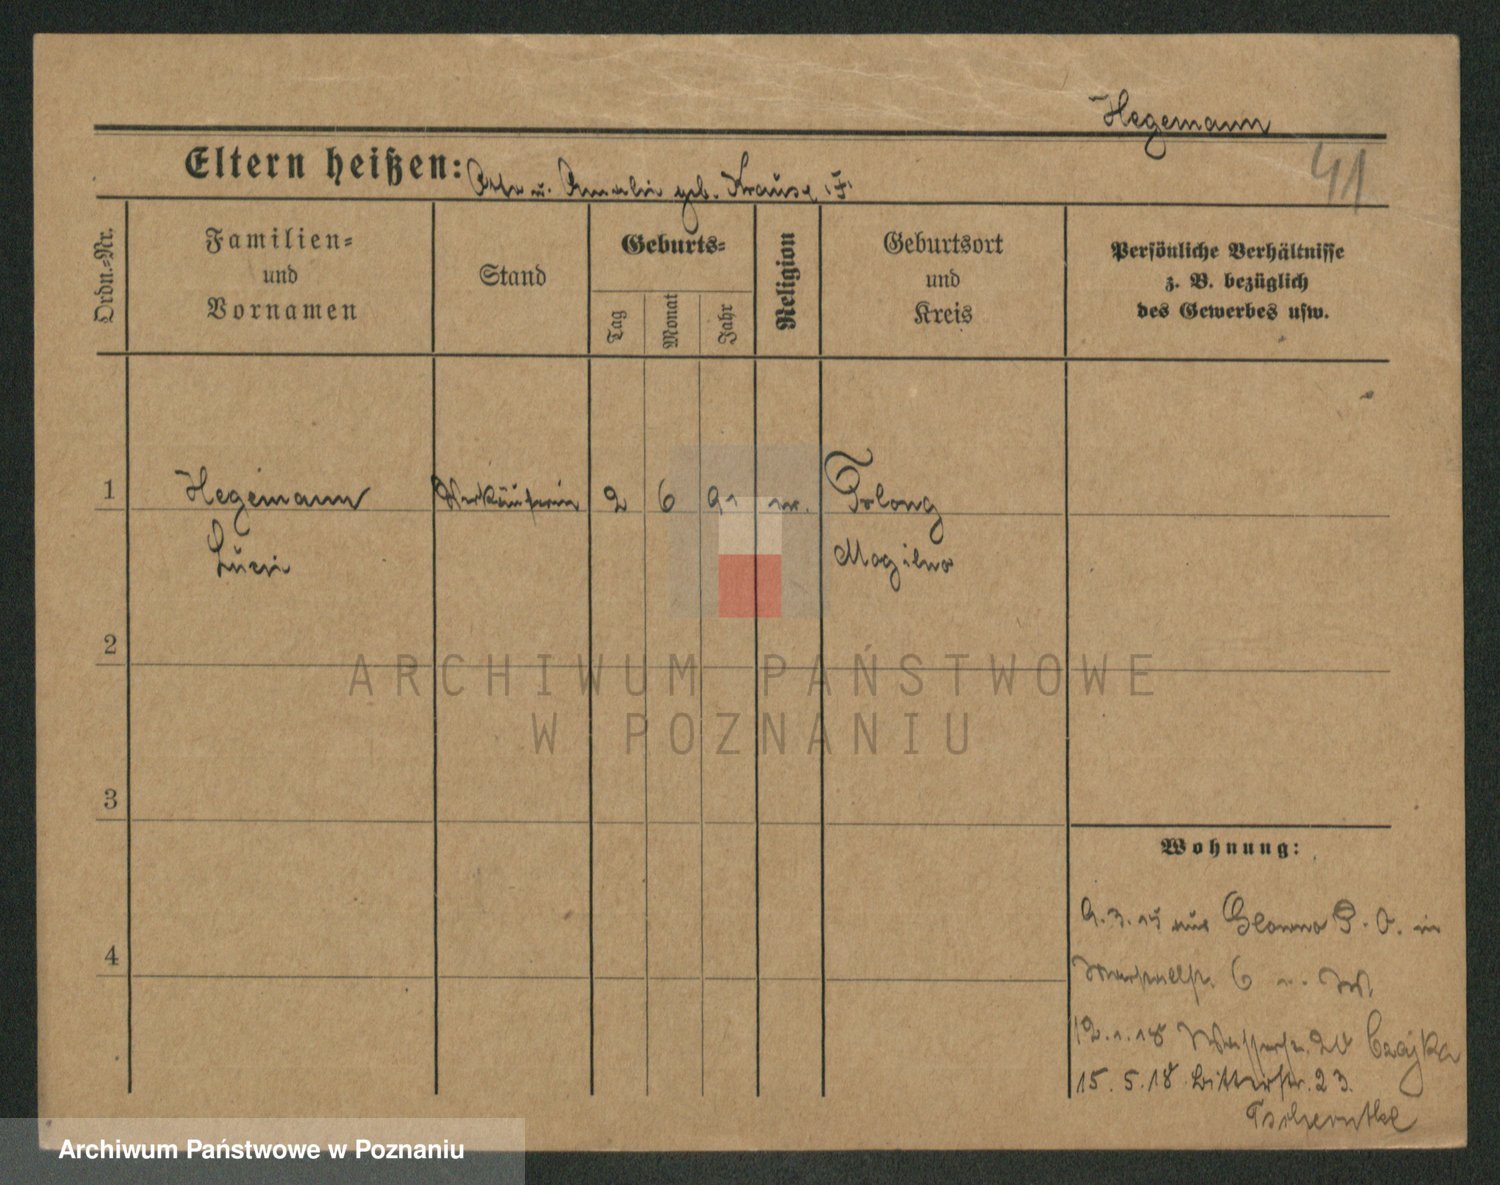 Hegemann
41
Eltern heißen: u. Amalie geb. Krause
Ordn.-Nr.
Familien-
und
Vornamen
Stand
Geburts-
Tag
Monat
Jahr
Religion
Geburtsort
und
Kreis
Persönliche Verhältnisse
z. B. bezüglich
des Gewerbes usw.
1
Hegemann
Verkäuferin
2
6
91
Orlong
Mogilno
2
3
4
Wohnung:
9. 3. 15 aus Glowno P. O. in
6
12. 1. 18 Wasserstr. Czajka
15. 5. 18 Ritterstr. 23.
ARCHIWUM PAŃSTWOWE
W POZNANIU
Archiwum Państwowe w Poznaniu